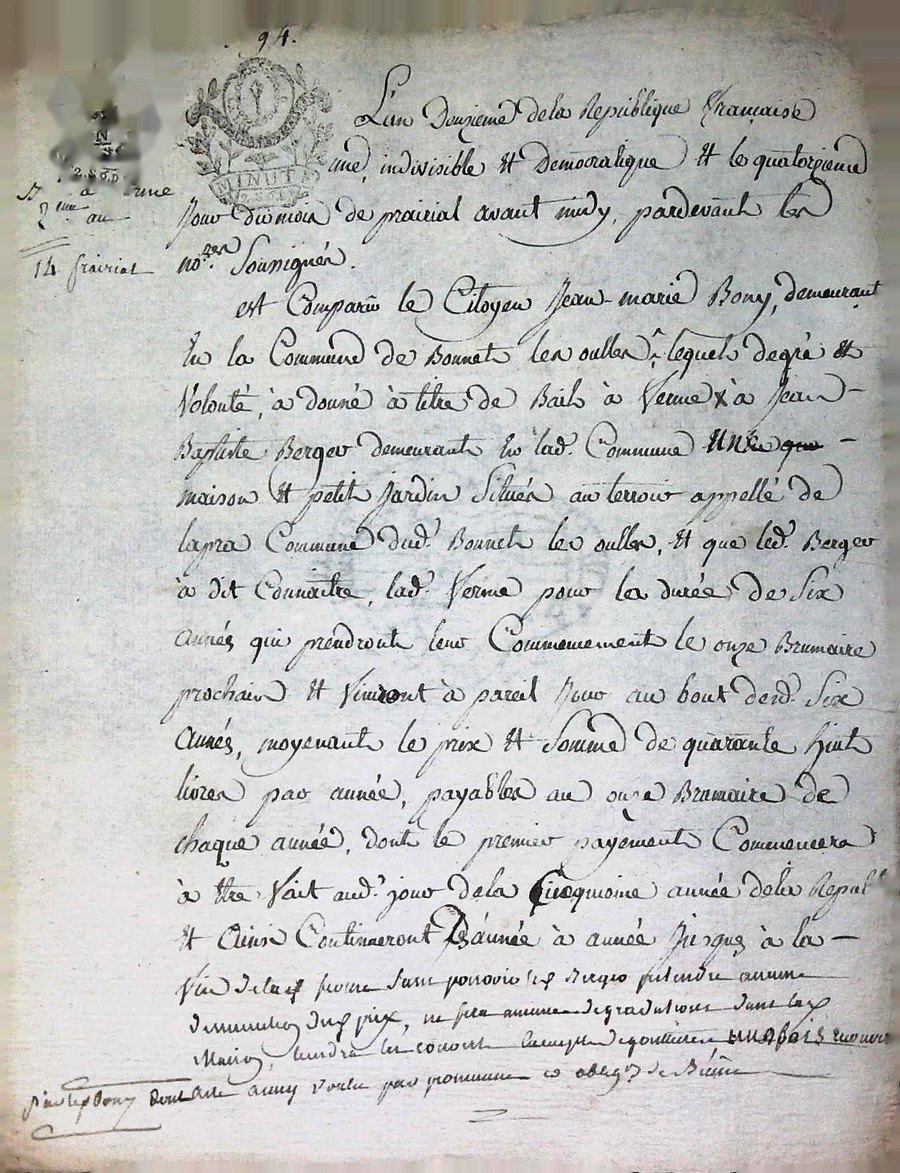 94.
MINUTE
2.S6D
14 prairial
L'an Deuxieme de la Republique française
une, indivisible et Democratique et le quatorzieme
Jour du mois de prairial avant midy, pardevant les
no.res Soussignés.
est Comparu le Citoyen Jean-marie Bony, demeurant
En la Commune de Bonnet les oulles, lequel de gré et
Volonté, à donné à titre de Bail à ferme à Jean
Baptiste Berger demeurant En lad. Commune une
maison et petit jardin Situés au terroir appellé de
lapra Commune dud. Bonnet les oulles, et que led. Berger
à dit Connaitre, lad. ferme pour la durée de Six
années qui prendront leur Commencement le onze Brumaire
prochain et finiront à pareil Jour au bout desd. Six
années, moyenant le prix et Somme de quarante huit
livres par année, payables au onze Brumaire de
chaque année, dont le premier payement Commencera
à être fait aud. jour de la Cinquieme année de la Republ
et Ainsi Continueront d'année à année Jusques à la
fin de lad. ferme sans pouvoir led. Berger pretendre aucune
diminution dud. prix, ne fera aucune degradations dans la
Maison, tiendra le couvert